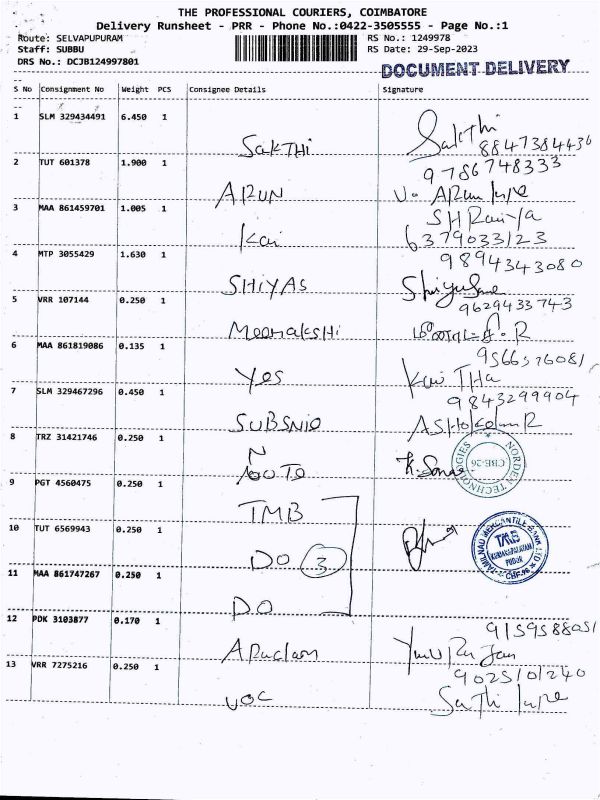 THE PROFESSIONAL COURIERS, COIMBATORE
Delivery Runsheet - PRR - Phone No.:0422-3505555 - Page No.:1
Route: SELVAPUPURAM RS No.: 1249978
Staff: SUBBU RS Date: 29-Sep-2023
DRS No.: DCJB124997801
DOCUMENT DELIVERY
S No Consignment No Weight PCS Consignee Details Signature
1 SLM 329434491 6.450 1 SAKTHI Sakthi
8847384436
2 TUT 601378 1.900 1 9786748333
ARUN
3 MAA 861459701 1.005 1
Kai 6379033123
4 MTP 3055429 1.630 1 9894343080
SHIYAS
5 VRR 107144 0.250 1 9629433743
Meenakshi
6 MAA 861819086 0.135 1 9566576081
Yes
7 SLM 329467296 0.450 1 9843299904
8 TRZ 31421746 0.250 1
NORDEN TECHNOLOGIES
CBE-26
9 PGT 4560475 0.250 1
TMB
10 TUT 6569943 0.250 1
DO 3
TAMILNAD MERCANTILE BANK LTD
TMB
11 MAA 861747267 0.250 1
DO
12 PDK 3103877 0.170 1 9159588051
13 VRR 7275216 0.250 1 9025101240
VOC